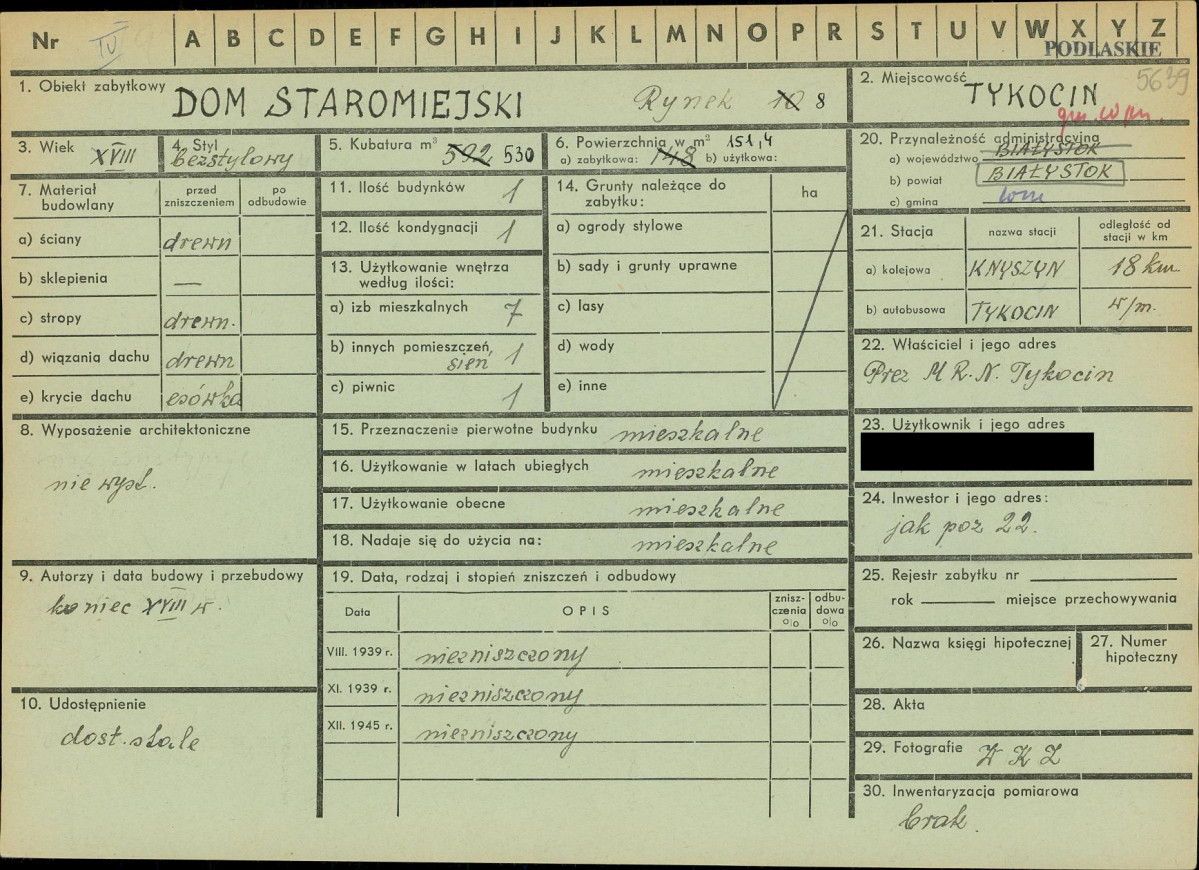 Nr IV A B C D E F G H I J K L M N O P R S T U V W X Y Z
PODLASKIE
5639
1. Obiekt zabytkowy DOM STAROMIEJSKI Rynek 10 8
2. Miejscowość TYKOCIN
3. Wiek XVIII
4. Styl bezstylowy
5. Kubatura m³ 592 530
6. Powierzchnia w m² 151,4
a) zabytkowa: 148 b) użytkowa:
7. Materiał budowlany
przed zniszczeniem
po odbudowie
a) ściany drewn
b) sklepienia —
c) stropy drewn.
d) wiązania dachu drewn
e) krycie dachu esówka
8. Wyposażenie architektoniczne
nie wyst.
9. Autorzy i data budowy i przebudowy
koniec XVIII w.
10. Udostępnienie
dost. stale
11. Ilość budynków 1
12. Ilość kondygnacji 1
13. Użytkowanie wnętrza
według ilości:
a) izb mieszkalnych 7
b) innych pomieszczeń, sień 1
c) piwnic 1
14. Grunty należące do
zabytku:
ha
a) ogrody stylowe
b) sady i grunty uprawne
c) lasy
d) wody
e) inne
15. Przeznaczenie pierwotne budynku mieszkalne
16. Użytkowanie w latach ubiegłych mieszkalne
17. Użytkowanie obecne mieszkalne
18. Nadaje się do użycia na: mieszkalne
19. Data, rodzaj i stopień zniszczeń i odbudowy
Data OPIS znisz-
czenia
o|o
odbu-
dowa
o|o
VIII. 1939 r. niezniszczony
XI. 1939 r. niezniszczony
XII. 1945 r. niezniszczony
20. Przynależność administracyjna
a) województwo BIAŁYSTOK
b) powiat BIAŁYSTOK
c) gmina
21. Stacja
nazwa stacji
odległość od
stacji w km
a) kolejowa KNYSZYN 18 km
b) autobusowa TYKOCIN w/m.
22. Właściciel i jego adres
Prez M R. N. Tykocin
23. Użytkownik i jego adres
24. Inwestor i jego adres:
jak poz 22.
25. Rejestr zabytku nr
rok miejsce przechowywania
26. Nazwa księgi hipotecznej
27. Numer
hipoteczny
28. Akta
29. Fotografie W K Z
30. Inwentaryzacja pomiarowa
brak.